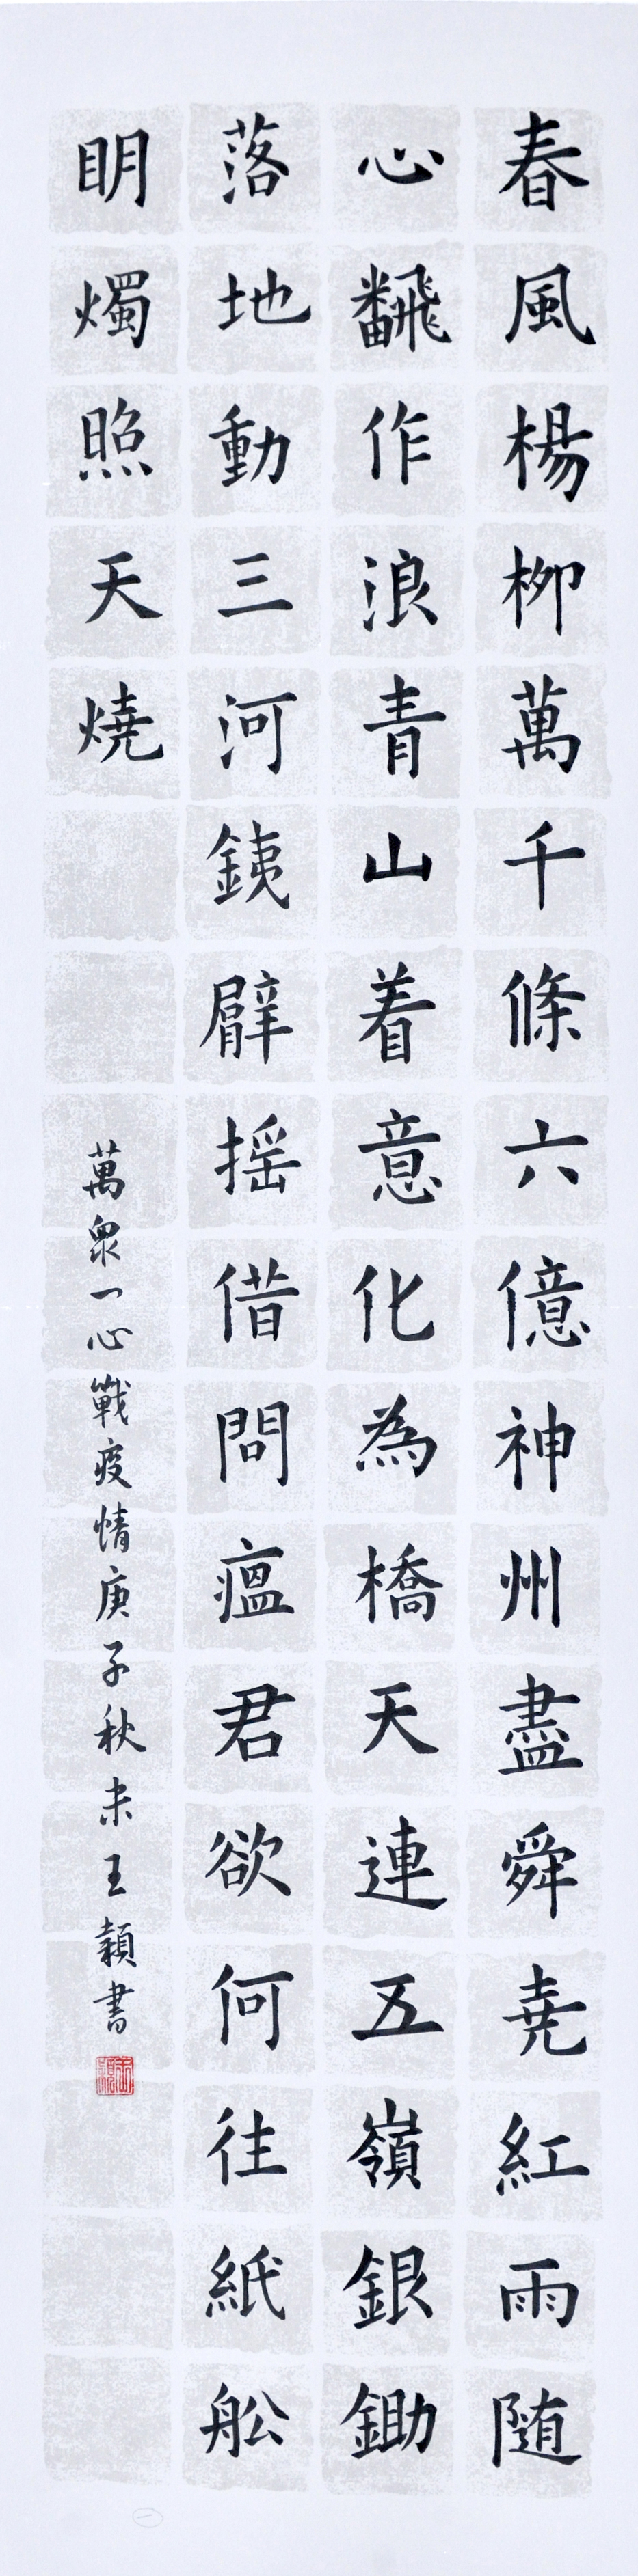 春風楊柳萬千條六億神州盡舜堯紅雨随
心飜作浪青山着意化為橋天連五嶺銀鋤
落地動三河銕臂摇借問瘟君欲何往紙舩
明燭照天燒
萬衆一心戰疫情庚子秋末王穎書